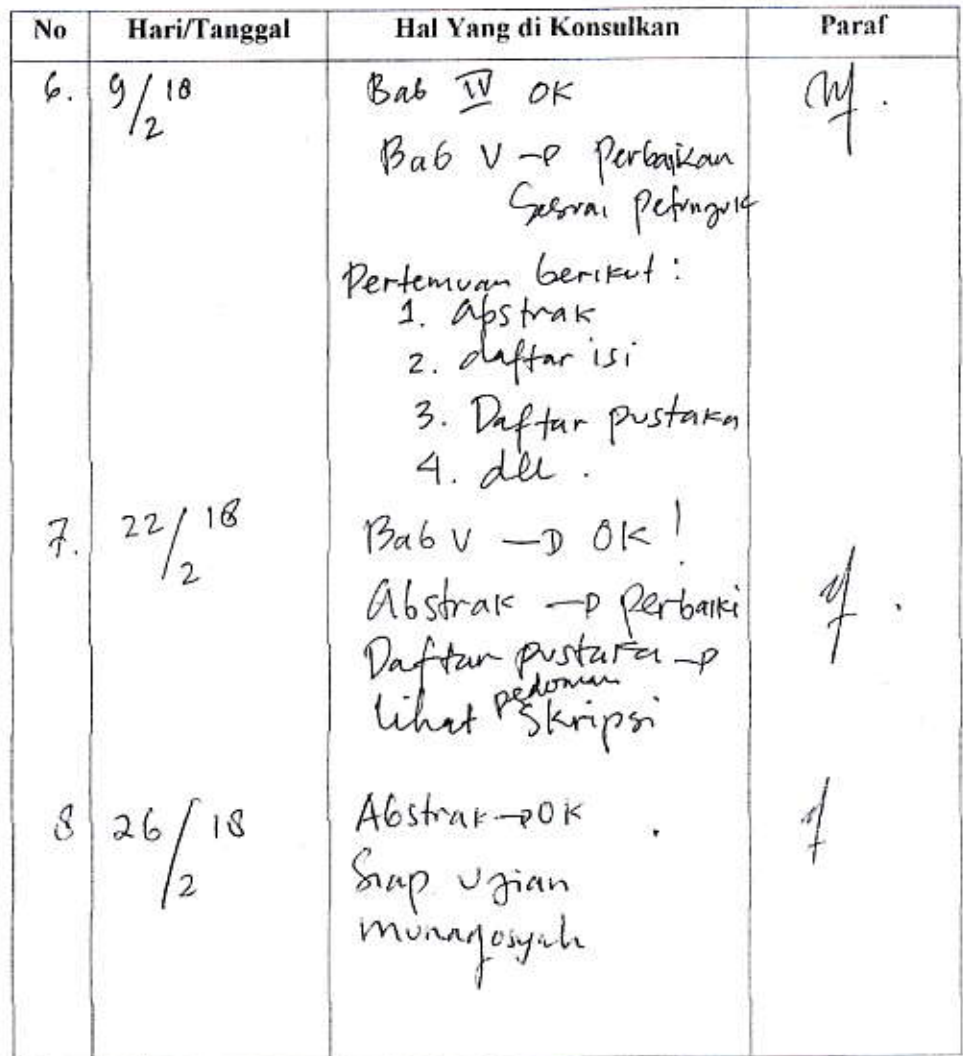 No Hari/Tanggal Hal Yang di Konsulkan Paraf
6. 9/2 18 Bab IV OK
Bab V → Perbaikan
Sesuai Petunjuk
Pertemuan berikut :
1. abstrak
2. daftar isi
3. Daftar pustaka
4. dll .
7. 22/2 18 Bab V → OK !
Abstrak → Perbaiki
Daftar pustaka →
lihat pedoman Skripsi
8 26/2 18 Abstrak → OK .
Siap Ujian
munaqosyah